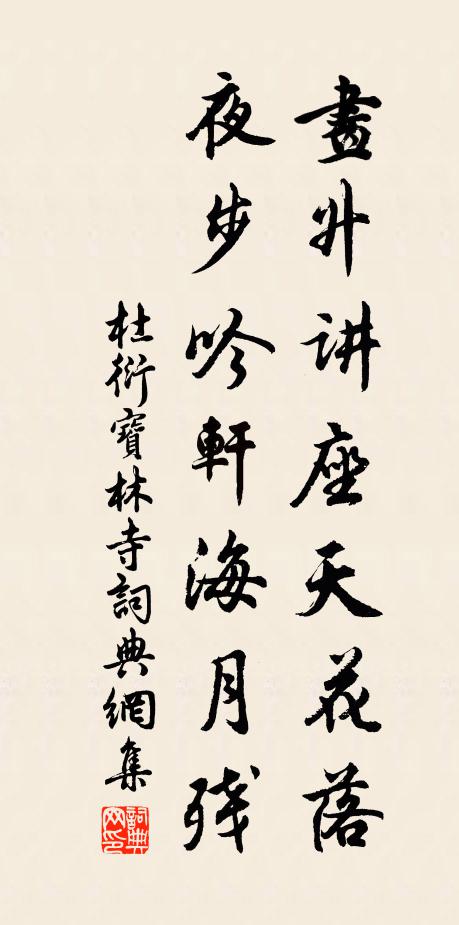 畫升讲座天花落
夜步吟軒海月残
杜衍寶林寺詞典網集
詞典网印